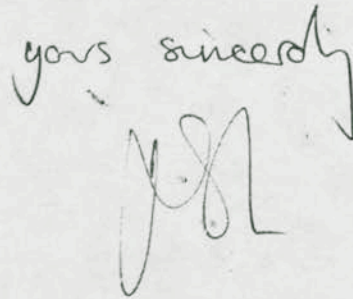 yours sincerely